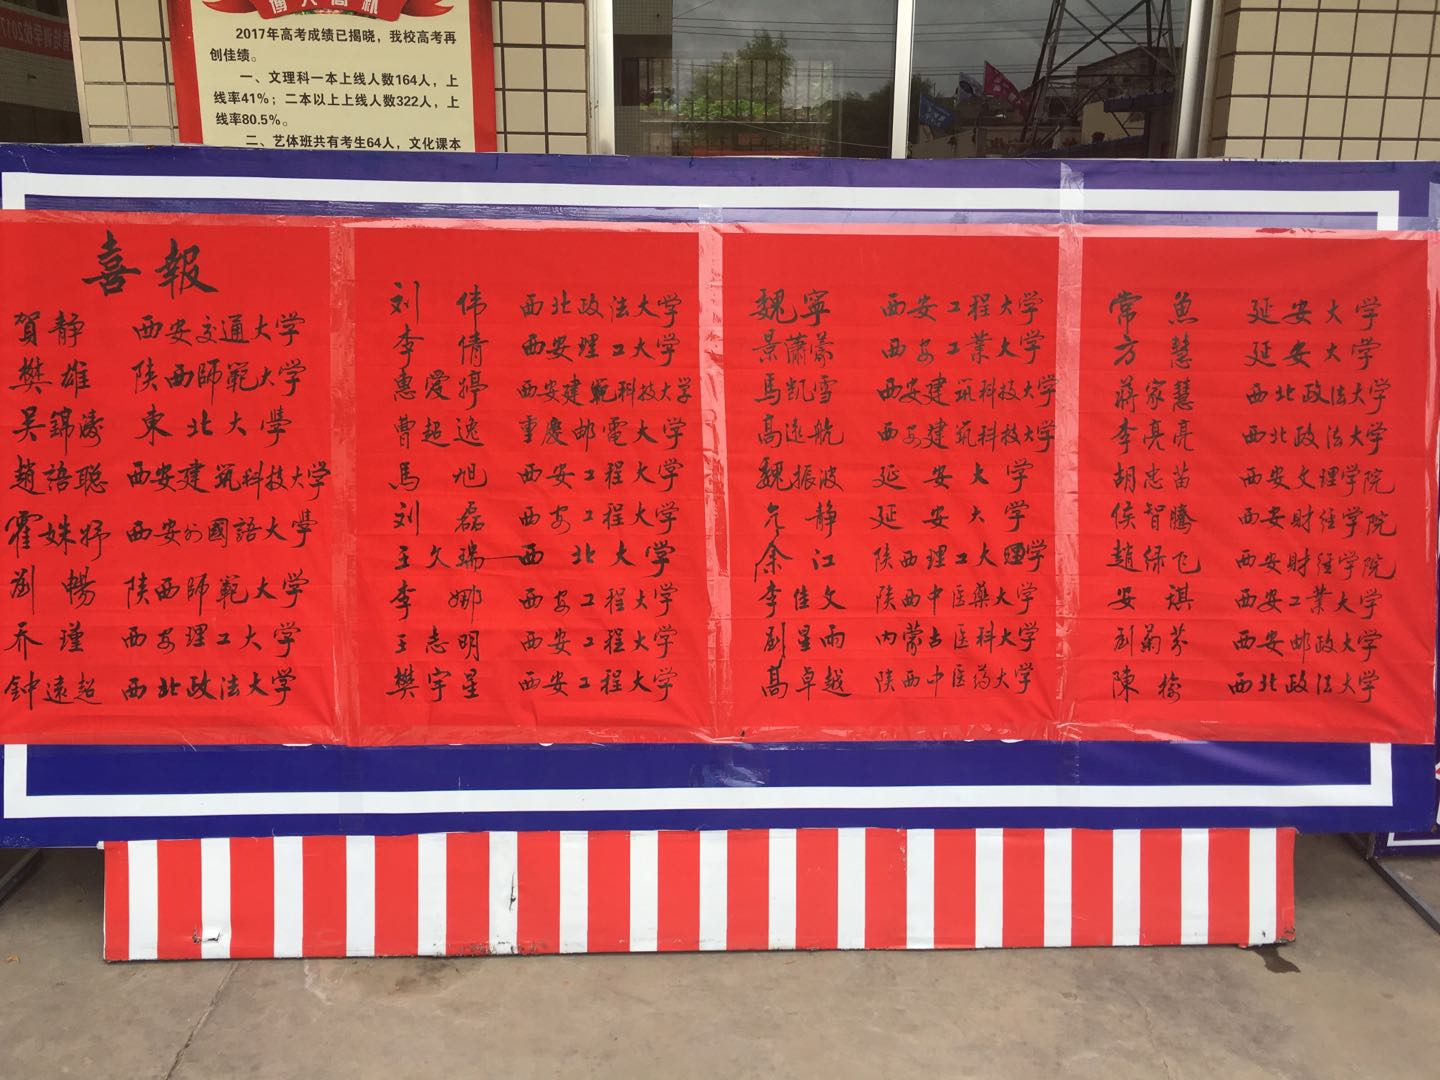 2017年高考成绩已揭晓，我校高考再
创佳绩。
一、文理科一本上线人数164人，上
线率41%；二本以上上线人数322人，上
线率80.5%。
二、艺体班共有考生64人，文化课本
喜報
賀静 西安交通大学
樊雄 陕西師範大学
吴錦濤 東北大學
趙語聪 西安建筑科技大学
霍姝抒 西安外國語大學
劉暢 陕西師範大学
乔瑾 西安理工大学
钟遠超 西北政法大学
刘伟 西北政法大学
李倩 西安理工大学
惠爱婷 西安建筑科技大学
曹超逸 重慶邮電大学
馬旭 西安工程大学
刘磊 西安工程大学
王文瑞 西北大学
李娜 西安工程大学
王志明 西安工程大学
樊宇星 西安工程大学
魏寧 西安工程大学
景蕭 西安工業大学
馬凯雪 西安建筑科技大学
高远航 西安建筑科技大学
魏振波 延安大学
静 延安大学
余江 陕西理工大学
李佳文 陕西中医藥大学
劉星雨 内蒙古医科大学
高卓越 陕西中医药大学
常魚 延安大学
方慧 延安大学
蒋家慧 西北政法大学
李亮亮 西北政法大学
胡志苗 西安文理学院
侯智腾 西安财经学院
趙绿飞 西安財经学院
安琪 西安工業大学
劉菊芬 西安邮政大学
陳榆 西北政法大学